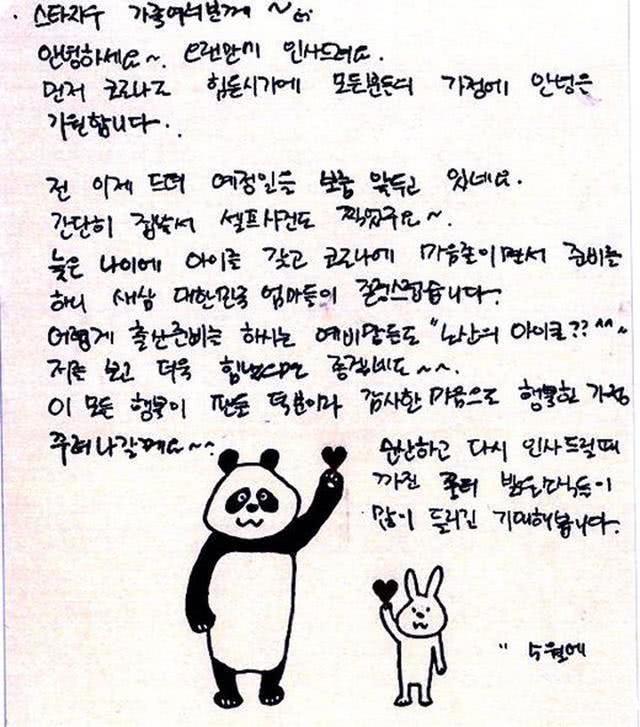 스타자수 가족여러분께 ~
안녕하세요~. 오랜만이 인사드려요.
먼저 코로나로 힘든시기에 모든분들의 가정에 안녕을
기원합니다..
전 이제 드뎌 예정일을 보름 앞두고 있네요.
간단히 집에서 셀프사진도 찍었구요~.
늦은 나이에 아이를 갖고 코로나에 마음졸이면서 준비를
하니 새삼 대한민국 엄마들이 존경스럽습니다.
어렵게 출산준비를 하시는 예비맘들도 "노산의 아이콘?? ^^"
저를 보고 더욱 힘냈으면 좋겠네요~~.
이 모든 행복이 팬분 덕분이라 감사한 마음으로 행복한 가정
꾸려나갈께요~~
순산하고 다시 인사드릴때
까진 밝은소식들이
많이 들리길 기대해봅니다.
" 4월에